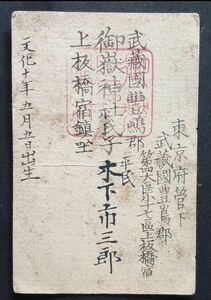 東京府管下
武蔵國豊嶌郡
第四大區小十七區上板橋宿
平民
武藏國豊嶋郡
御嶽神社氏子 木下市三郎
上板橋宿鎮坐
文化十年五月五日出生